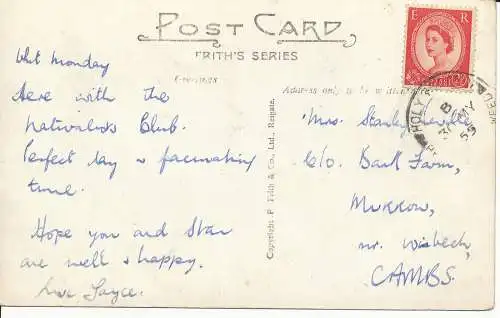 POST CARD
FRITH'S SERIES
Whit Monday
Here with the
Naturalists Club.
Perfect day & fascinating
time.
Hope you and Stan
are well & happy.
Love Joyce.
Copyright F. Frith & Co., Ltd., Reigate.
Address only to be written
E R
HOLY
30 MY
55
Mrs. Stanley
C/o. Bank Farm,
Murrow,
nr. Wisbech,
CAMBS.